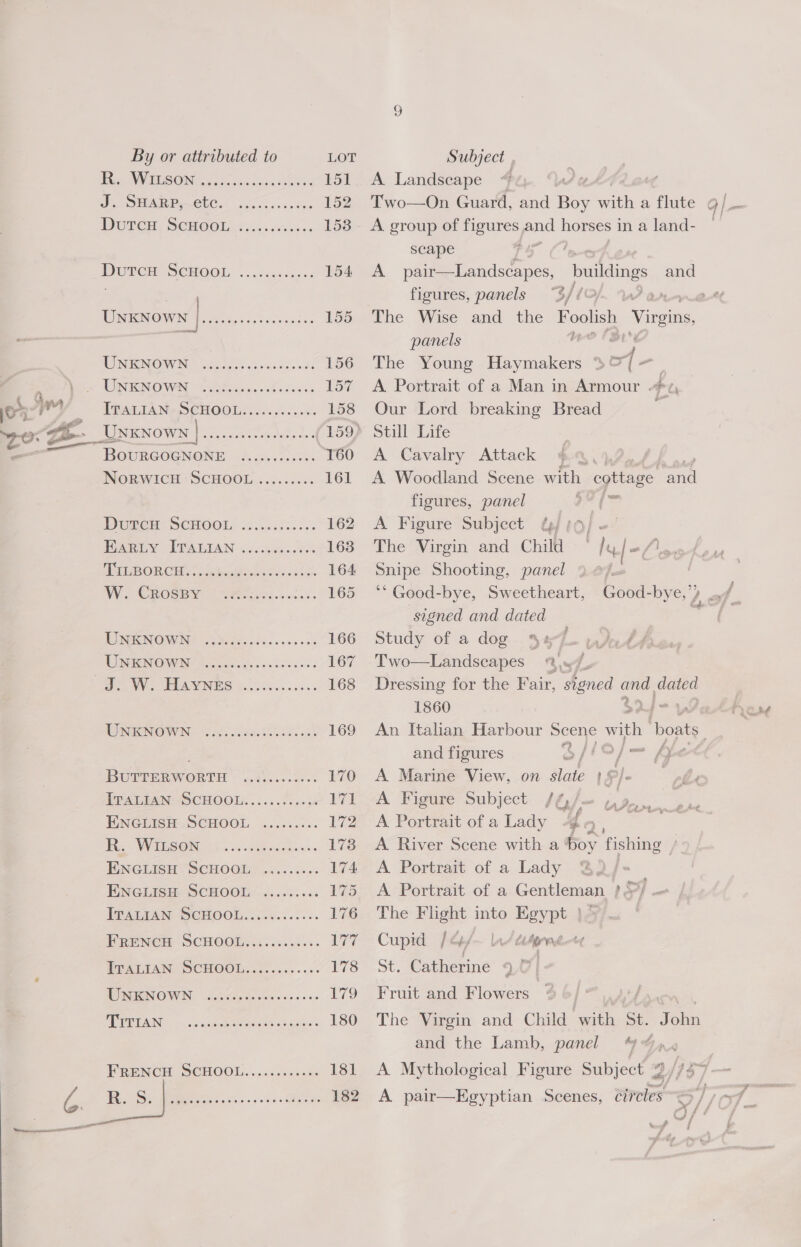 9
By or attributed to LOT Subject
R. WILSON .................. 151 A Landscape
J. SHARP, etc. ............ 152 Two—On Guard, and Boy with a flute 9/-
DUTCH SCHOOL ............ 153 A group of figures and horses in a land-
scape
DUTCH SCHOOL ............ 154 A pair—Landscapes, buildings and
figures, panels 3/10/-
UNKNOWN .................. 155 The Wise and the Foolish Virgins,
panels
UNKNOWN .................. 156 The Young Haymakers
UNKNOWN .................. 157 A Portrait of a Man in Armour
ITALIAN SCHOOL ............ 158 Our Lord breaking Bread
UNKNOWN .................. 159 Still Life
BOURGOGNONE ............ 160 A Cavalry Attack
NORWICH SCHOOL ......... 161 A Woodland Scene with cottage and
figures, panel
DUTCH SCHOOL ............ 162 A Figure Subject
EARLY ITALIAN ............ 163 The Virgin and Child
TILBORCH .................. 164 Snipe Shooting, panel
W. CROSBY .................. 165 “Good-bye, Sweetheart, Good-bye,”
signed and dated
UNKNOWN .................. 166 Study of a dog
UNKNOWN .................. 167 Two—Landscapes
J. W. HAYNES ............ 168 Dressing for the Fair, signed and dated
1860
UNKNOWN .................. 169 An Italian Harbour Scene with boats
and figures 3/10/-
BUTTERWORTH ............ 170 A Marine View, on slate
ITALIAN SCHOOL ............ 171 A Figure Subject
ENGLISH SCHOOL ......... 172 A Portrait of a Lady
R. WILSON .................. 173 A River Scene with a boy fishing
ENGLISH SCHOOL ......... 174 A Portrait of a Lady
ENGLISH SCHOOL ......... 175 A Portrait of a Gentleman
ITALIAN SCHOOL ............ 176 The Flight into Egypt
FRENCH SCHOOL ............ 177 Cupid
ITALIAN SCHOOL ............ 178 St. Catherine
UNKNOWN .................. 179 Fruit and Flowers
TITIAN .................. 180 The Virgin and Child with St. John
and the Lamb, panel
FRENCH SCHOOL ............ 181 A Mythological Figure Subject
R. S. .................. 182 A pair—Egyptian Scenes, circles